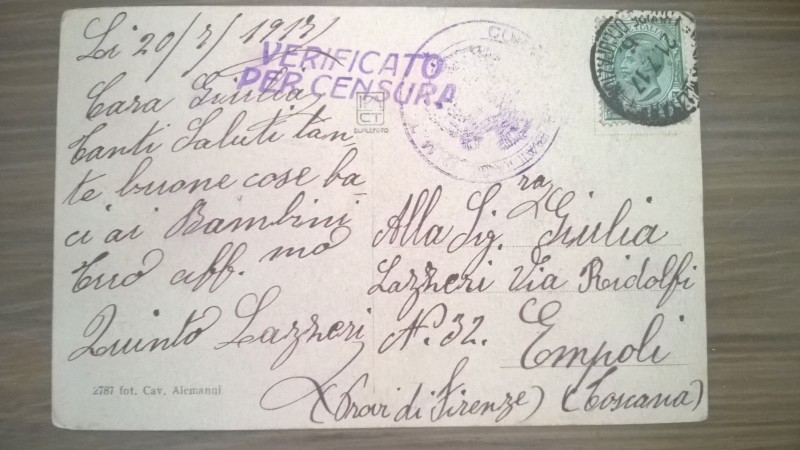 Li 20/7/1917
VERIFICATO
PER CENSURA
Cara Giulia
Tanti Saluti tan-
te buone cose ba-
ci ai Bambini
Tuo aff. mo
Quinto Lazzeri
Alla Sig.ra Giulia
Lazzeri Via Ridolfi
N. 32. Empoli
(Prov di Firenze) (Toscana)
2787 fot. Cav. Alemanni